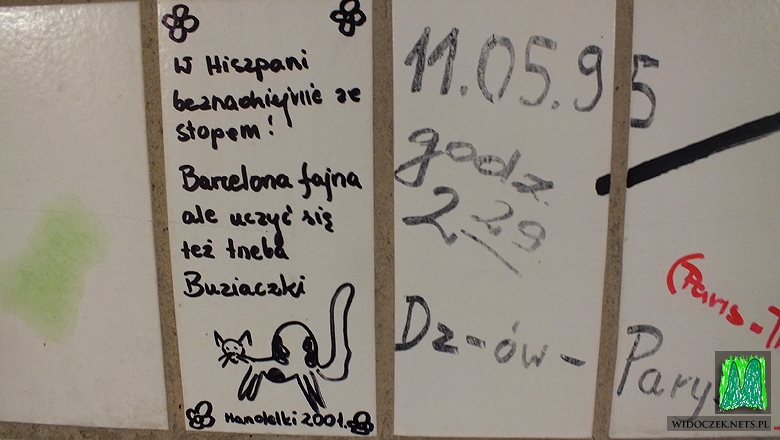 W Hiszpani
beznadziejnie ze
stopem!
Barcelona fajna
ale uczyć się
też trzeba
Buziaczki
2001r.
11.05.95
godz.
2 29
Dz-ów-
Pary
(Paris-T
WIDOCZEK.NETS.PL